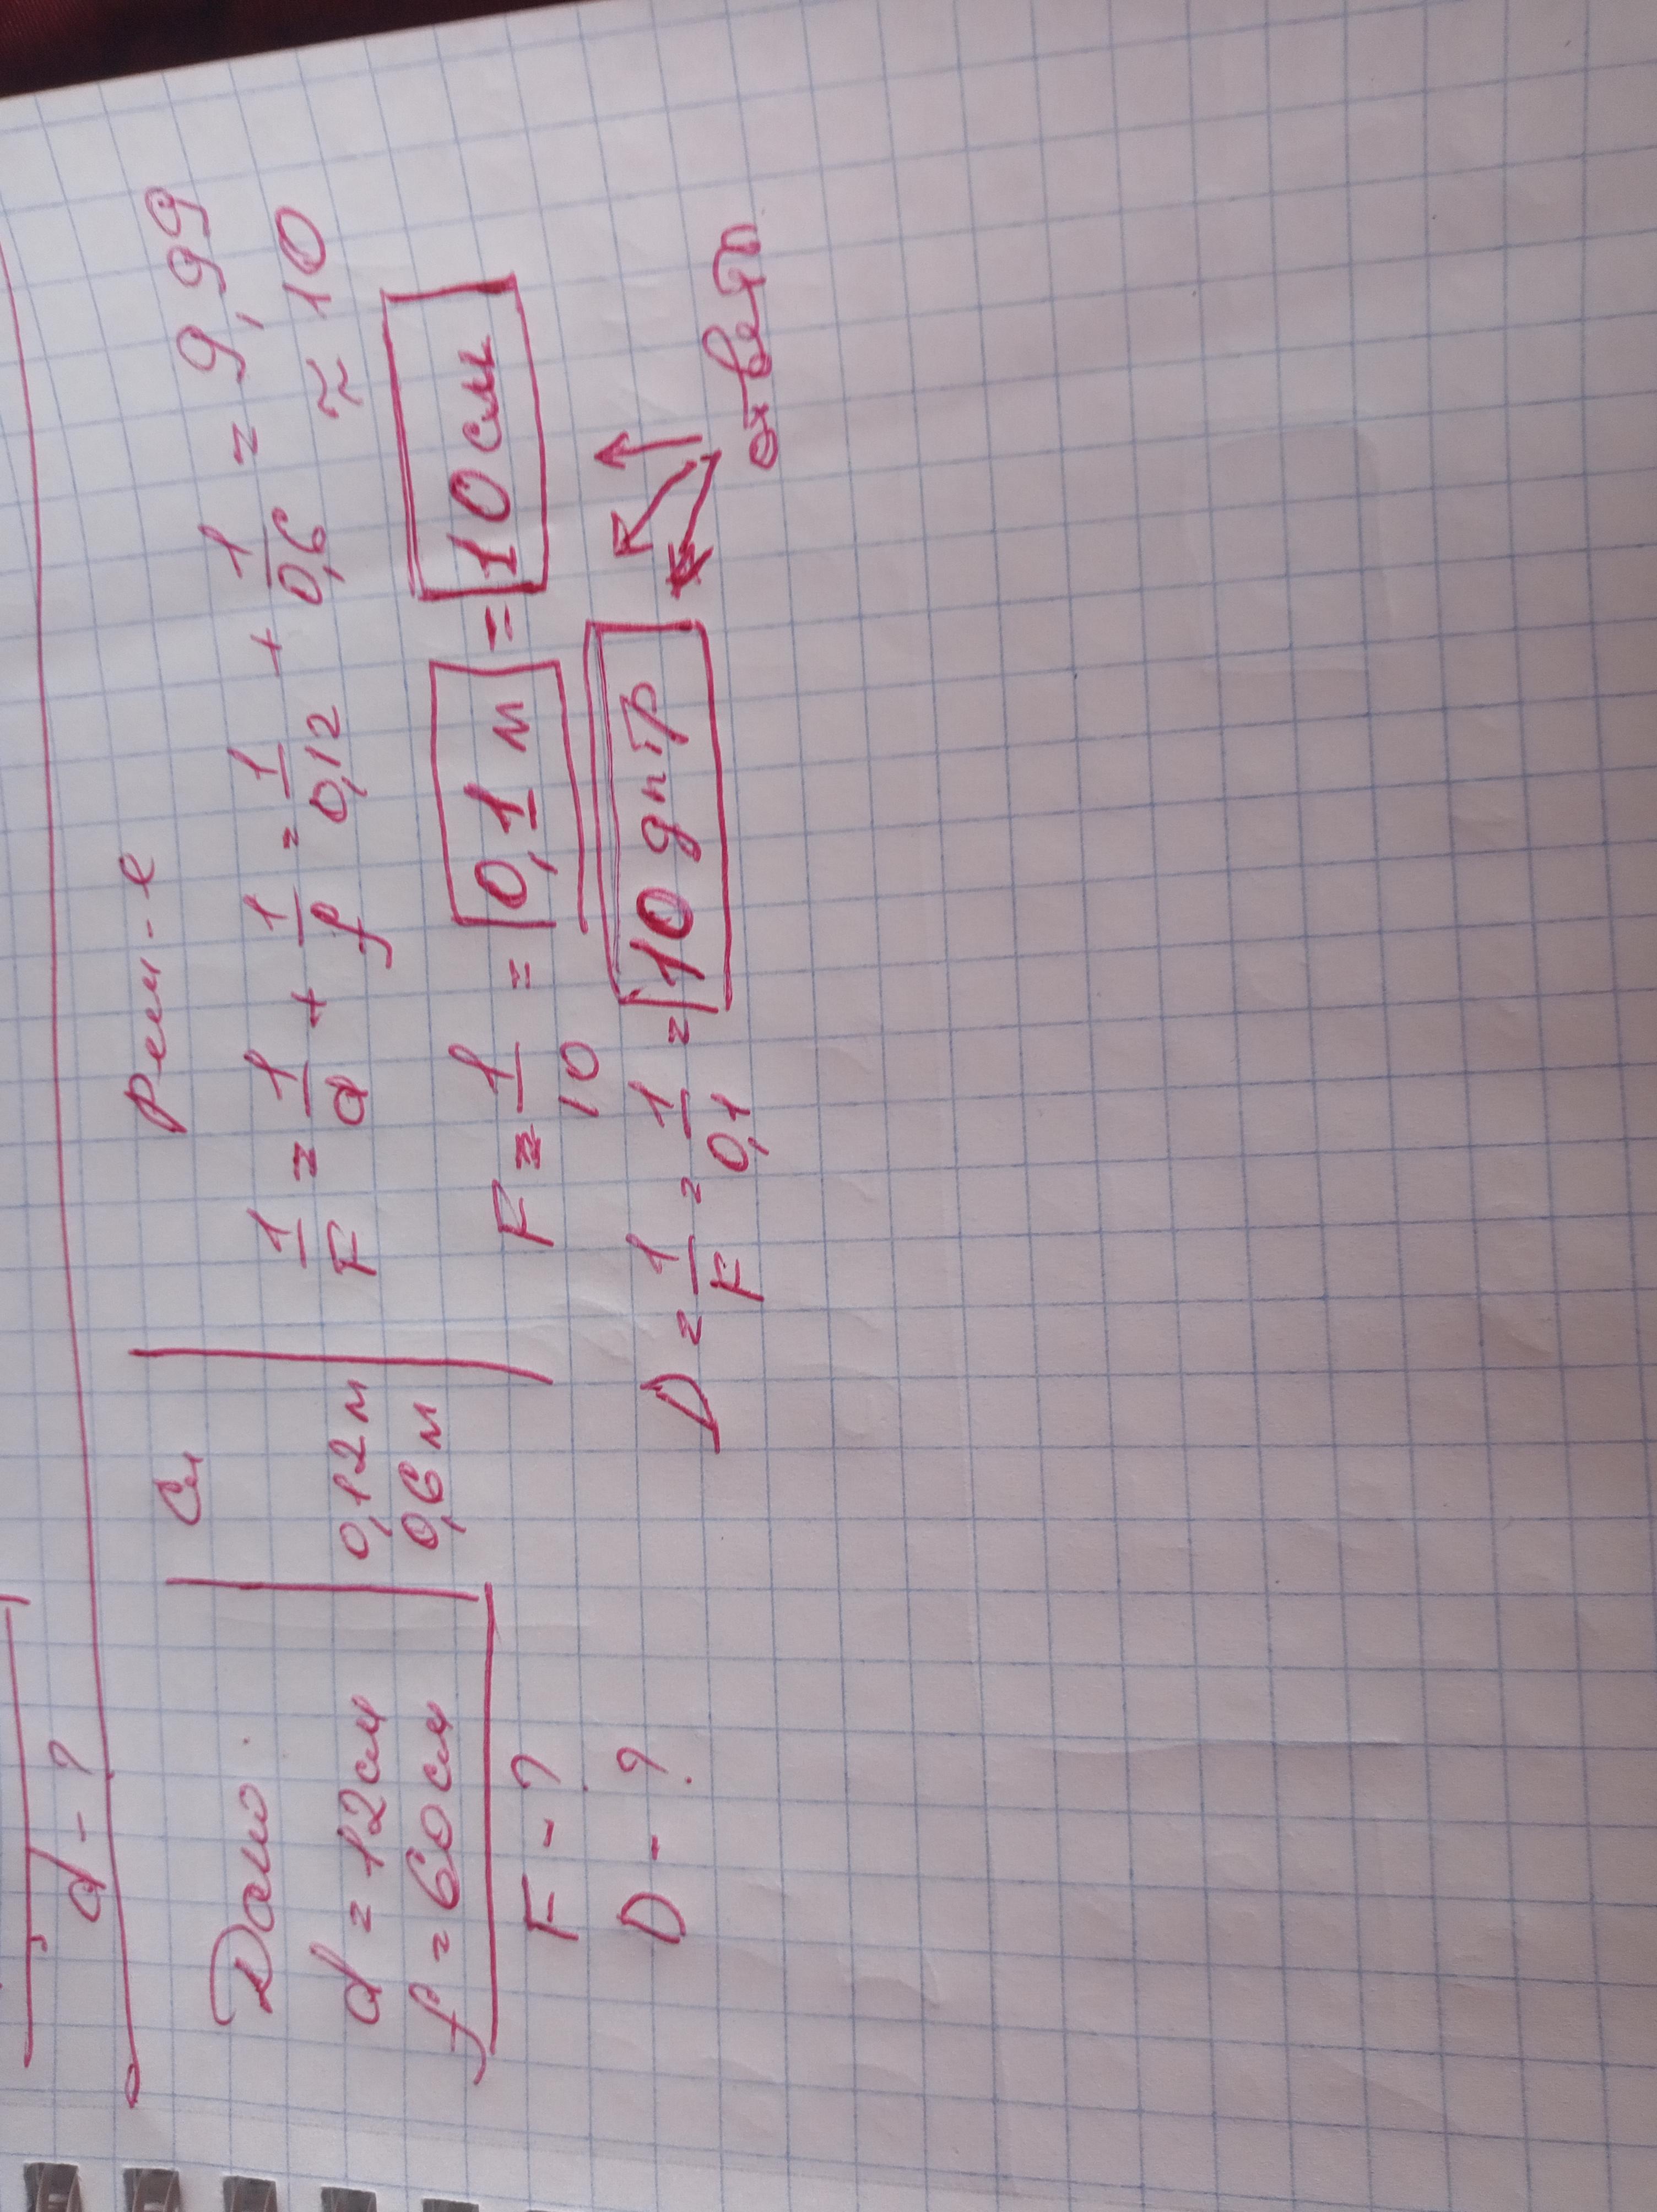 d - ?
Дано Си Реш-е
d = 12 см 0,12 м 1/F = 1/d + 1/f = 1/0,12 + 1/0,6 = 9,99
f = 60 см 0,6 м ≈ 10
F - ? F = 1/10 = 0,1 м = 10 см
D - ? D = 1/F = 1/0,1 = 10 дптр
ответ